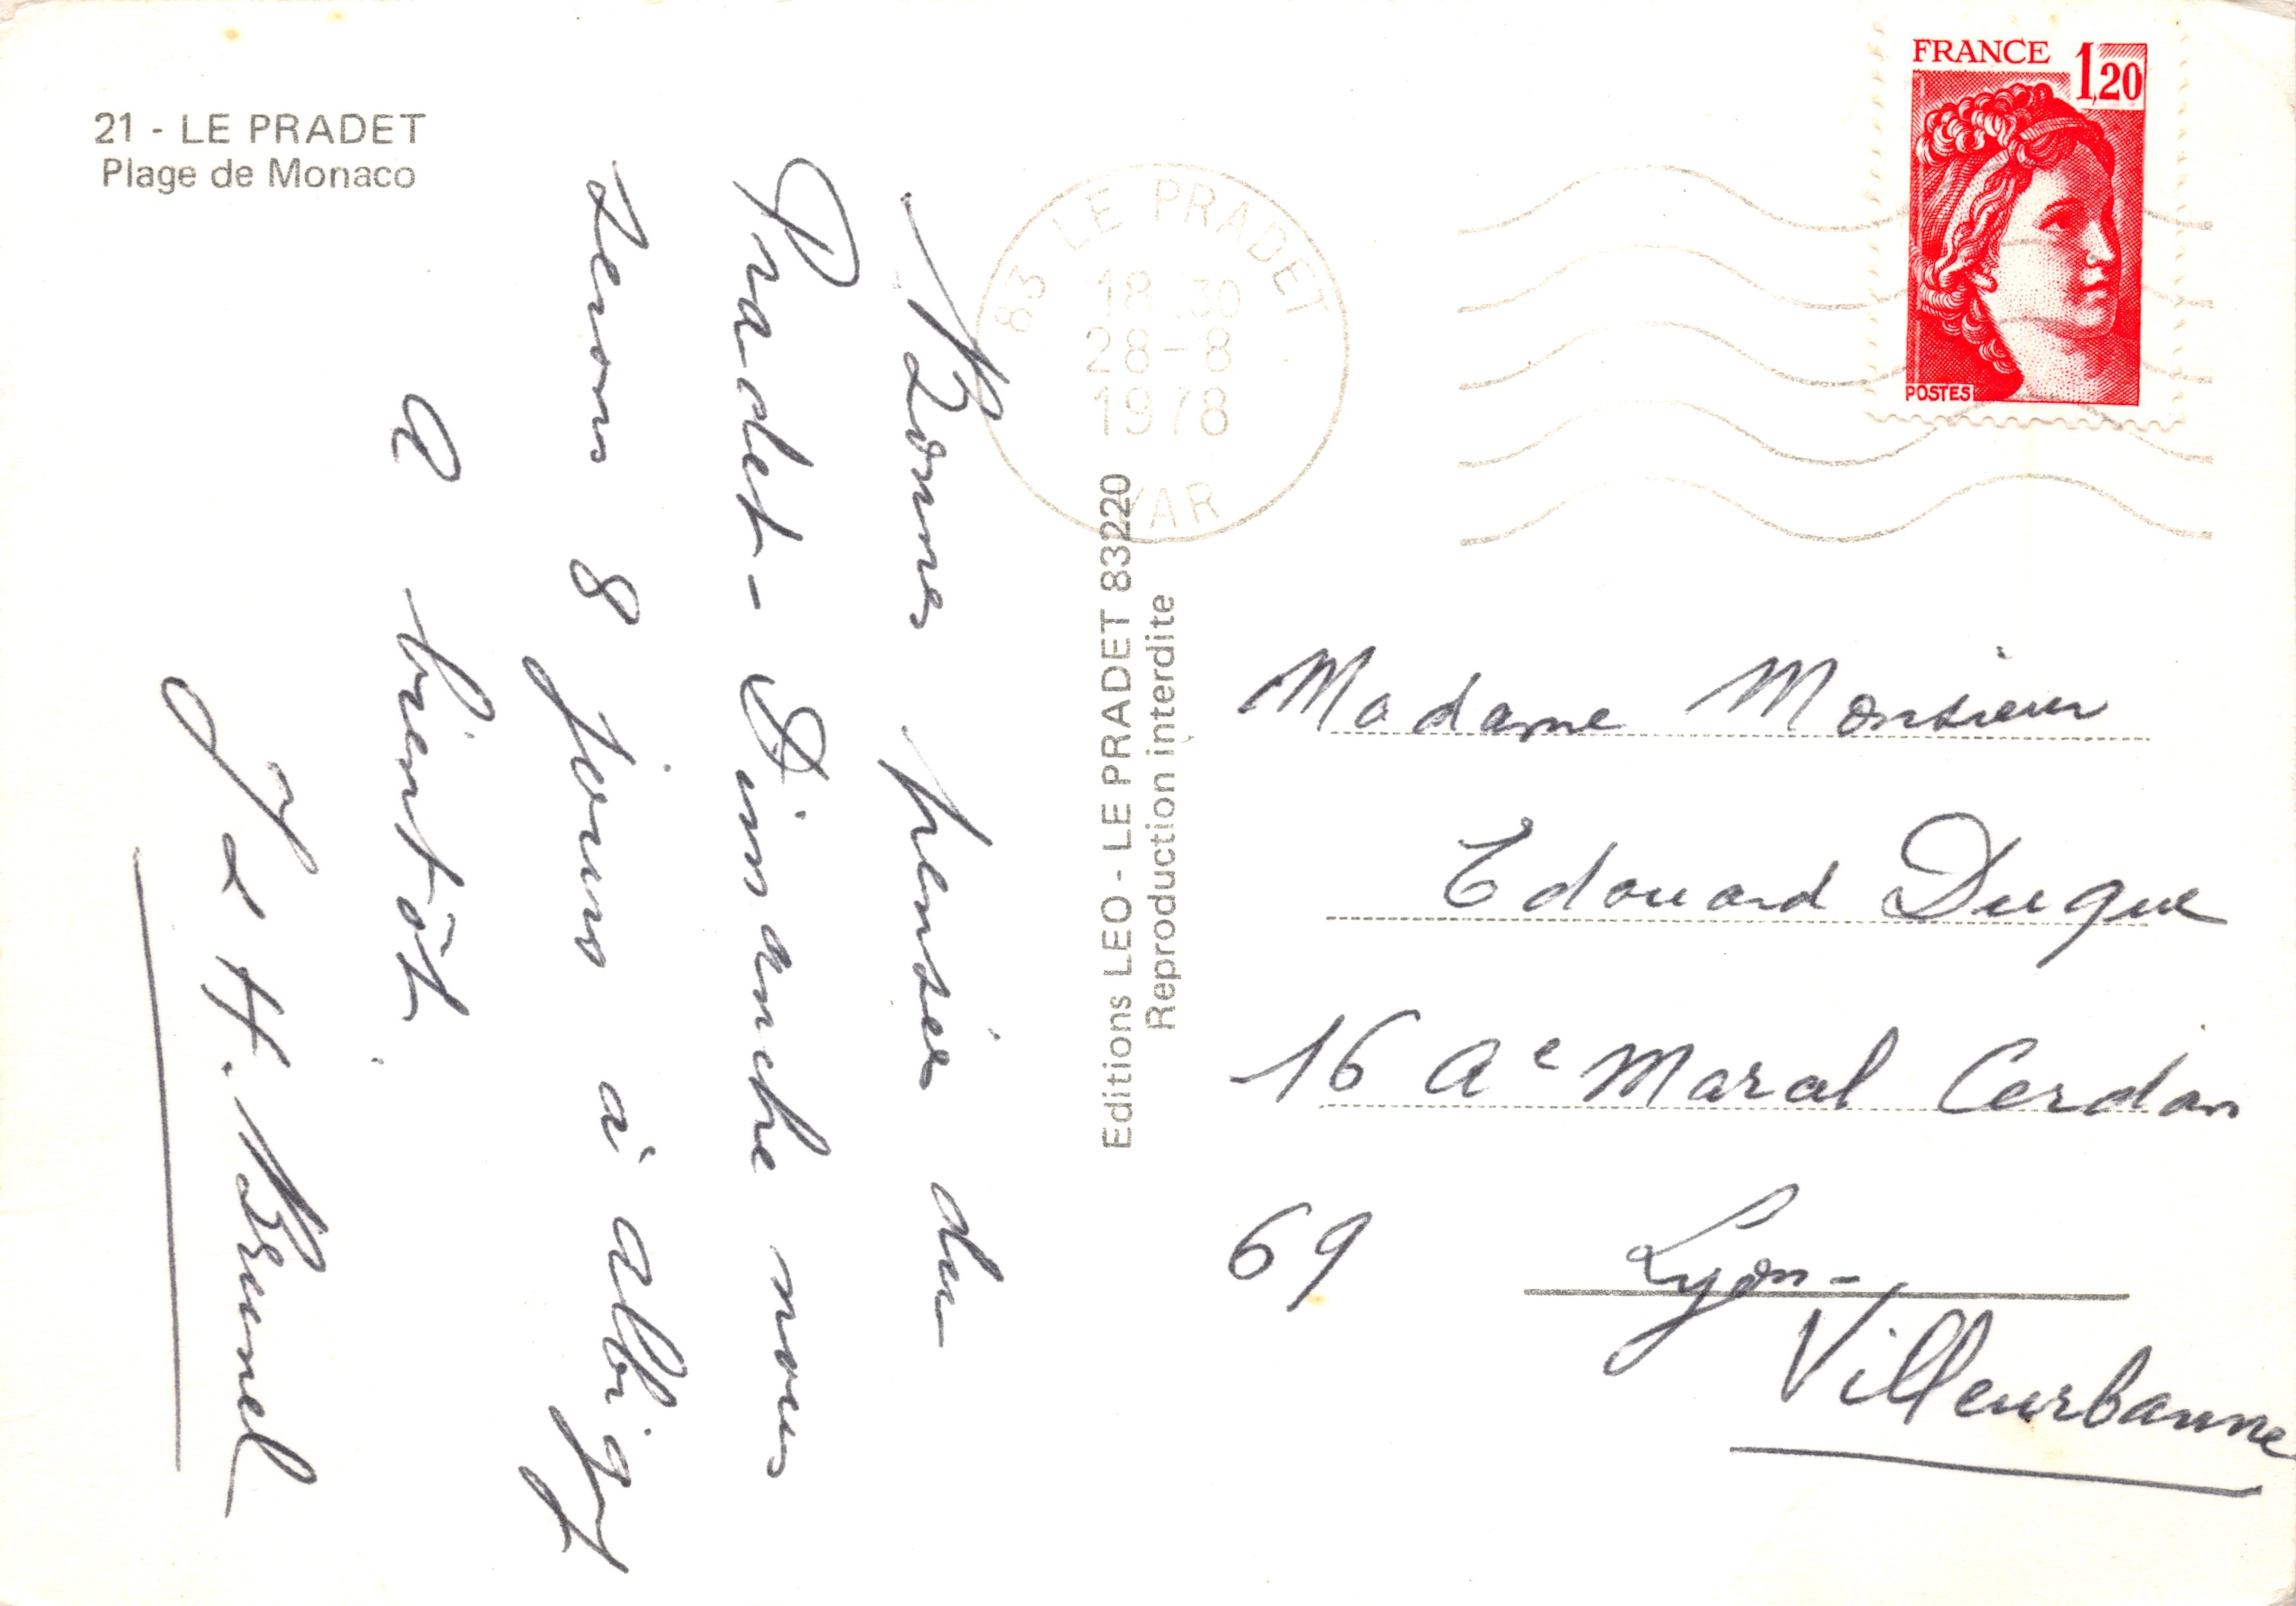 21 - LE PRADET
Plage de Monaco
Bonnes pensées du
Pradet - Dimanche nous
serons 8 jours à Albigny
A bientôt.
J & H. Brunel
Editions LEO - LE PRADET 83220
Reproduction interdite
83 LE PRADET
18 30
28-8
1978
VAR
FRANCE 1,20
POSTES
Madame Monsieur
Edouard Duque
16 Ae Marcel Cerdan
69 Lyon-
Villeurbanne